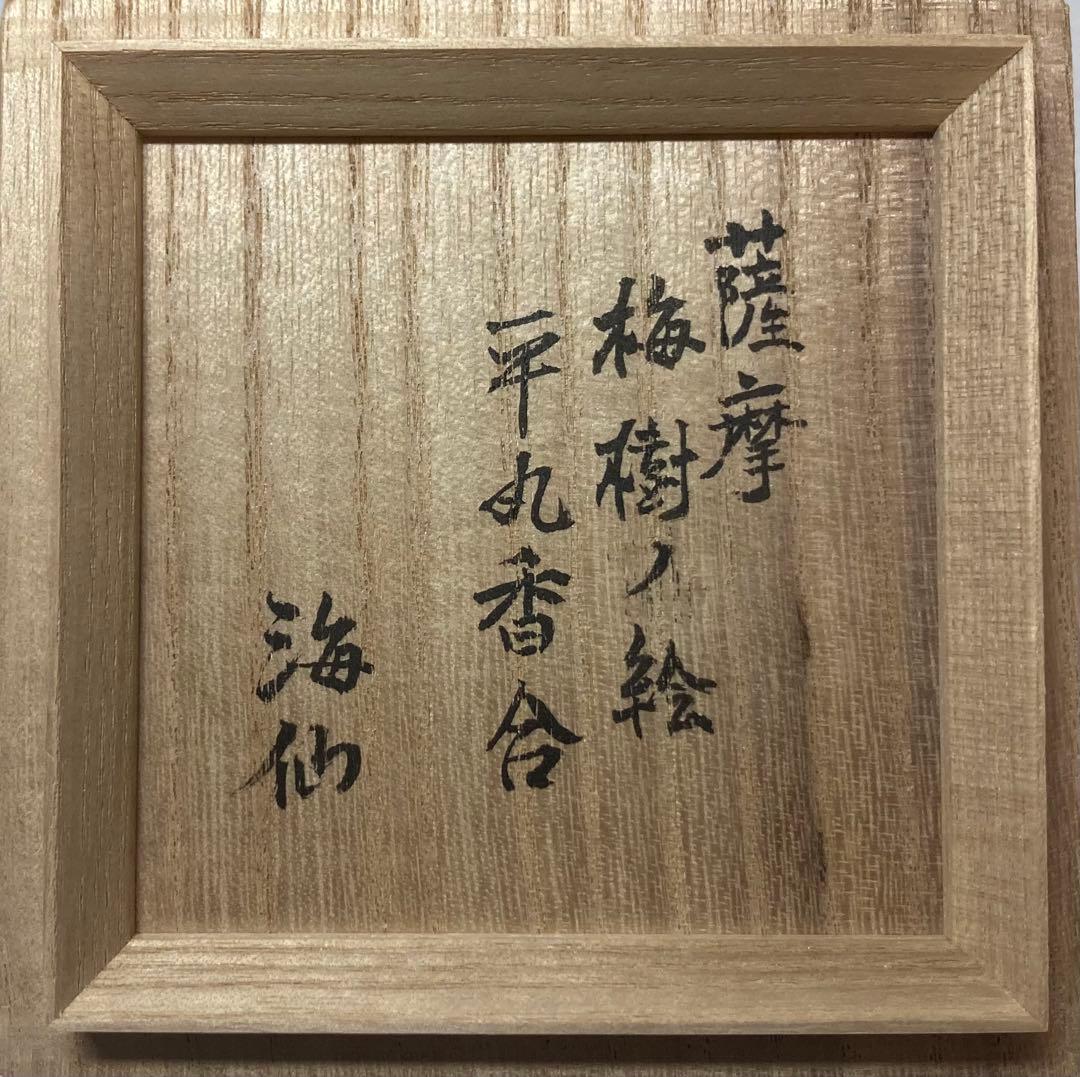 薩摩
梅樹ノ絵
平丸香合
海仙